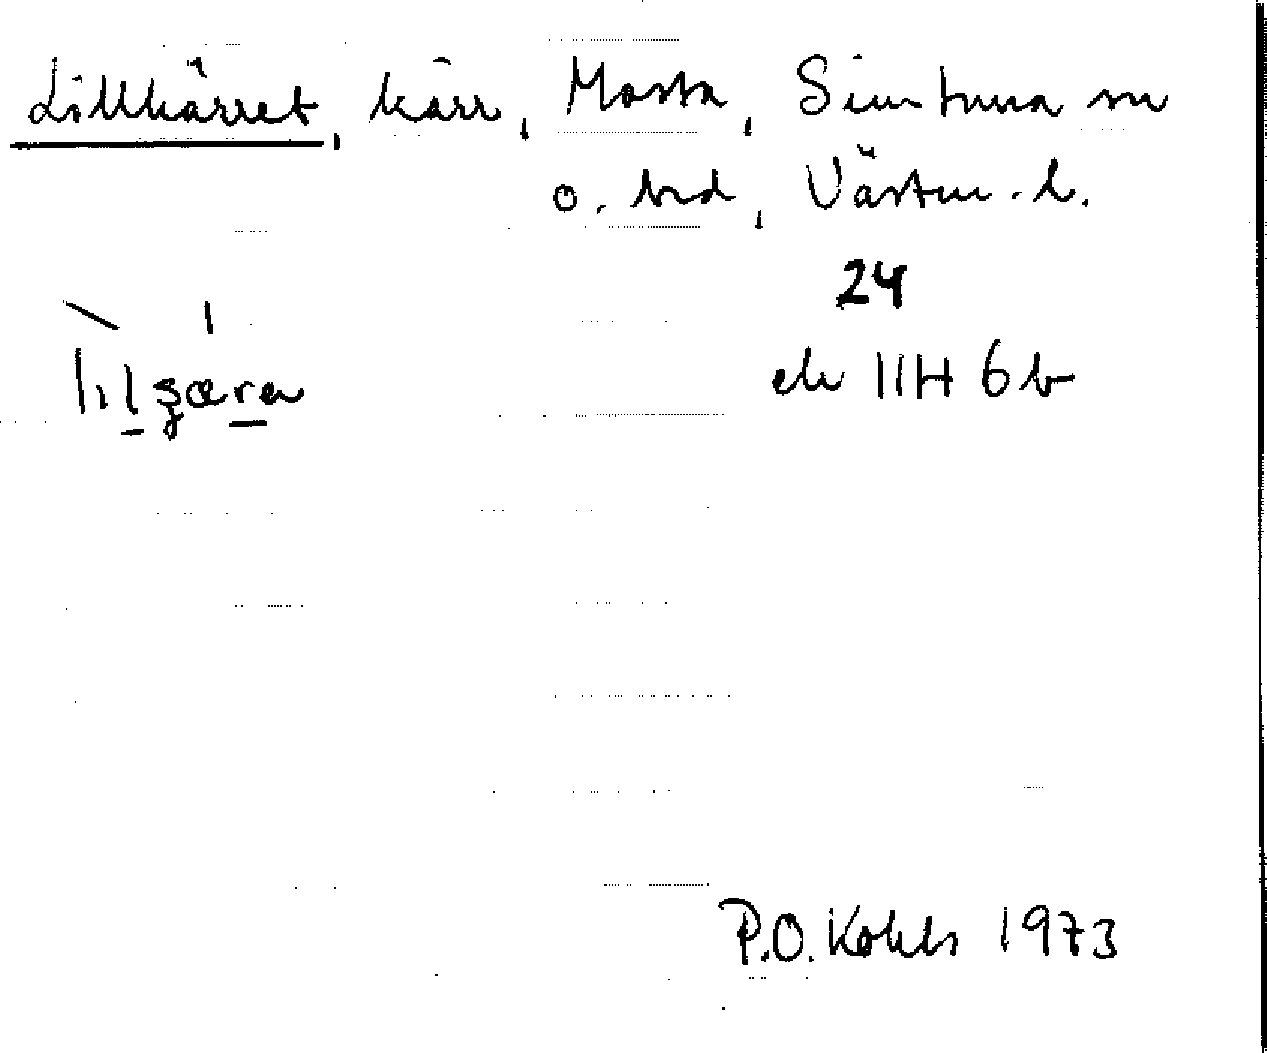 Lillkärret, kärr, Mosta, Simtuna sn
o. hd, Västm. l.
24
ek 11H 6b
P.O. Kohls 1973